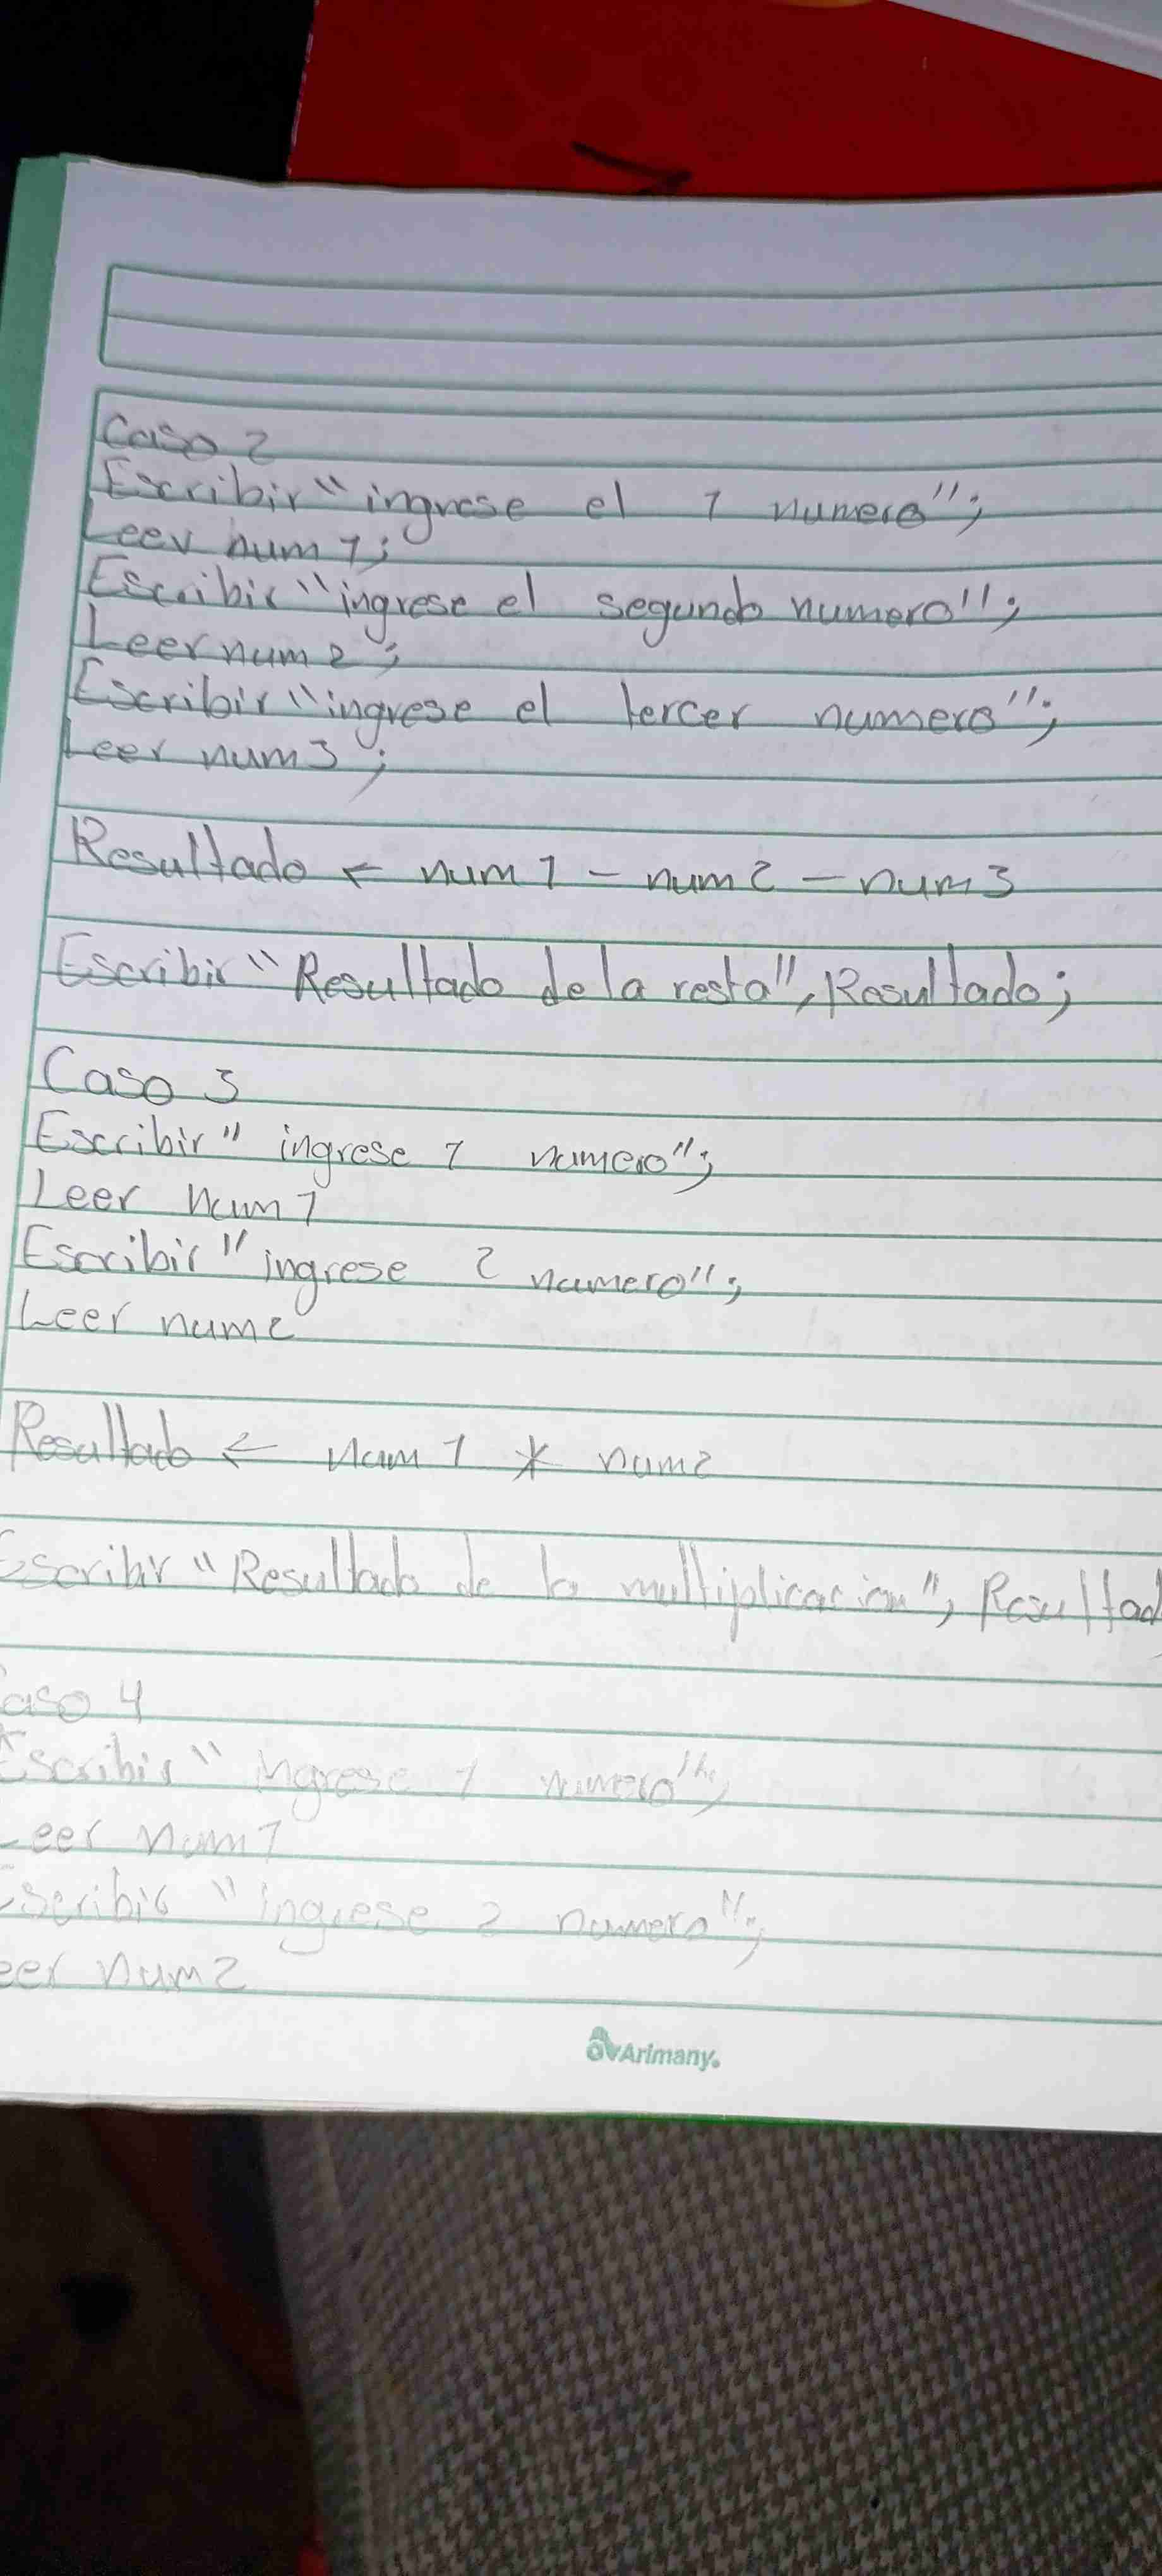 Caso 2
Escribir "ingrese el 1 numero";
Leer num 1;
Escribir "ingrese el segundo numero";
Leer num 2;
Escribir "ingrese el tercer numero";
Leer num3;
Resultado ← num 1 - num2 - num3
Escribir "Resultado de la resta", Resultado;
Caso 3
Escribir " ingrese 1 numero";
Leer num 1
Escribir "ingrese 2 numero";
Leer num2
Resultado ← num 1 * num2
Escribir "Resultado de la multiplicacion", Resultad
aso 4
Escribir " ingrese 1 numero";
Leer num 1
Escribir "ingrese 2 numero";
eer num 2
Arimany.